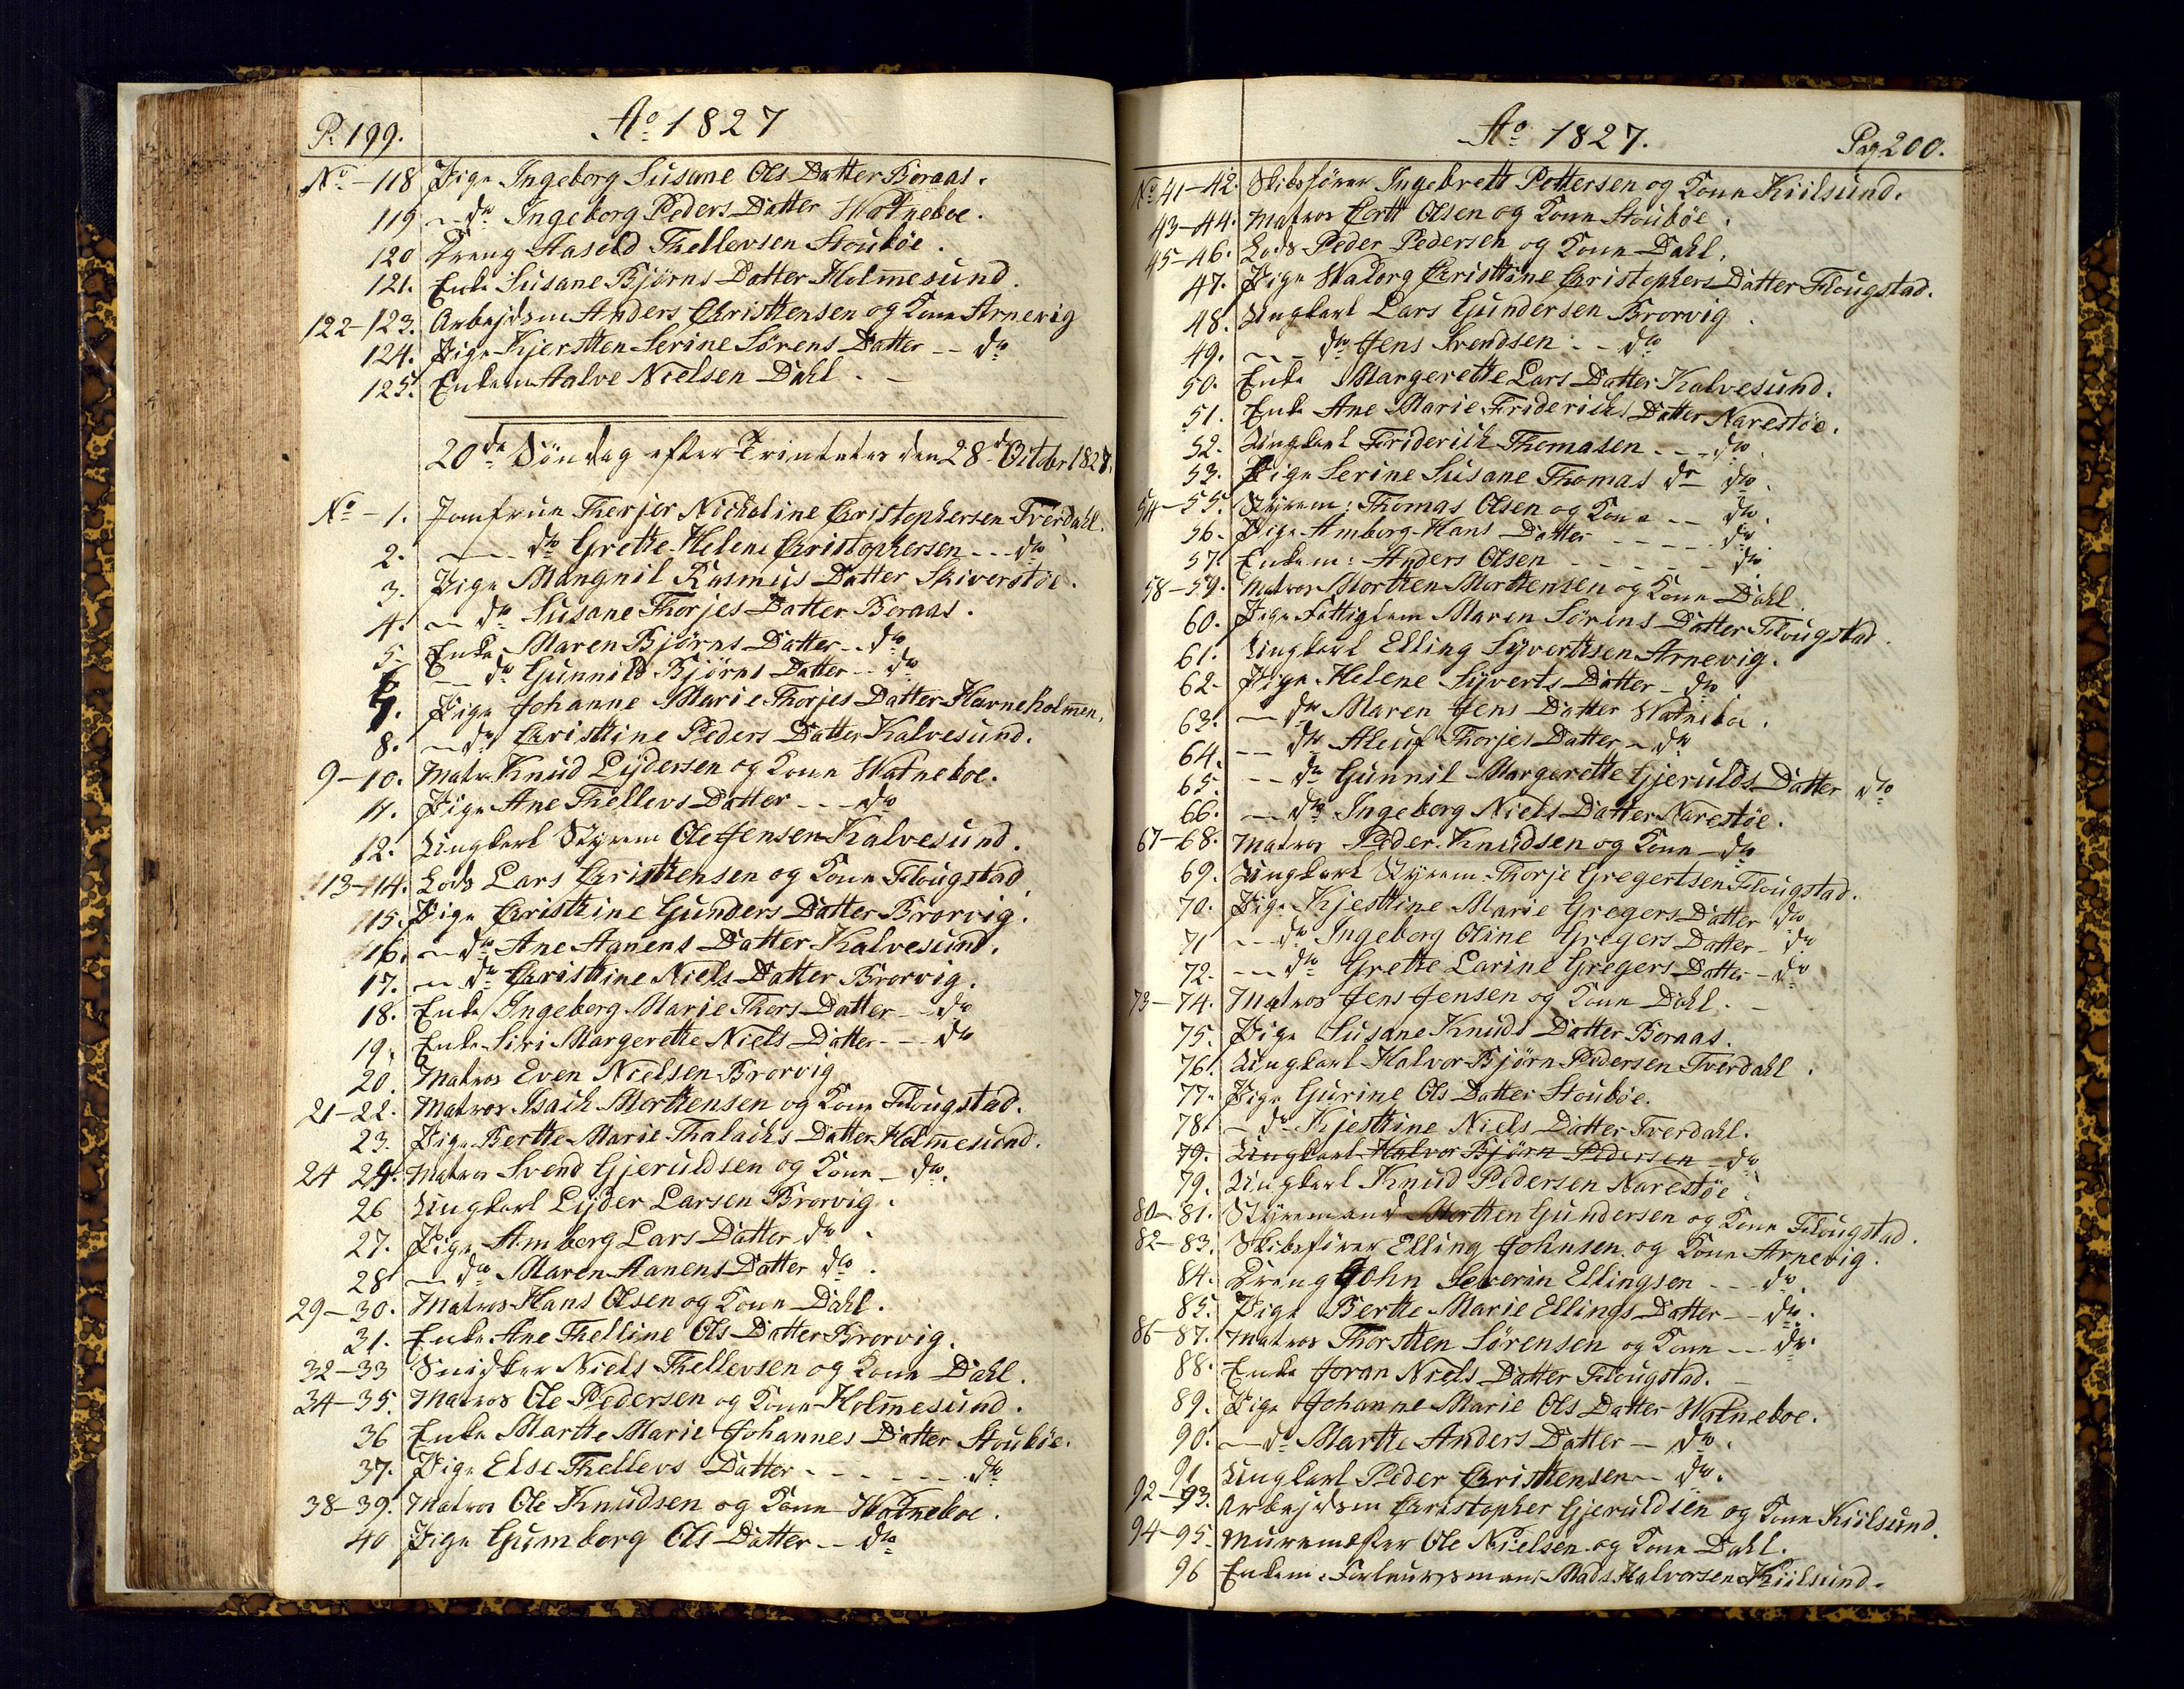 P. 199.
Ao 1827
No - 118 Pige Ingeborg Susane Ols Datter Boraas.
119 — do Ingeborg Peders Datter Watneboe.
120 Dreng Aasold Thellevsen Stouböe.
121. Enke Susane Björns Datter Holm̄esund.
122-123. Arbejdsm Anders Christtensen og Kone Arnevig
124. Pige Kjerstten Serine Sörens Datter -- do
125. Enkem Halve Nielsen Dahl. -
20de Söndag efter Trinitatis den 28d Octobr 1827.
No - 1. Jomfrue Therjer Nicholine Christophersen Tverdahl.
2. — do Grette Helene Christophersen --- do
3. Pige Mangnil Rasmus Datter Skiverstöe.
4. — do Susane Thorjes Datter Boraas.
5 Enke Maren Björns Datter -- do
6 — do Gunnild Björns Datter -- do
7. Pige Johanne Marie Thorjes Datter Havneholm̄en.
8. — do Christtine Peders Datter Kalvesund.
9-10. Matr. Knud Lydersen og Kone Watneboe.
11. Pige Ane Thellevs Datter --- do
12. Ungkarl Styrem Ole Jensen Kalvesund.
13-14. Lods Lars Christtensen og Kone Flougstad
15. Pige Christtine Gunders Datter Brorvig.
16. — do Ane Aanens Datter Kalvesund.
17. — do Christtine Niels Datter Brorvig.
18. Enke Ingeborg Marie Thers Datter -- do
19. Enke Siri Margerette Niels Datter --- do
20. Matros Even Nielsen Brorvig
21-22. Matros Isach Morttensen og Kone Flougstad.
23. Pige Bertte Marie Thalachs Datter Holm̄esund.
24 25. Matros Svend Gjeruldsen og Kone - do.
26 Ungkarl Lyder Larsen Brorvig.
27. Pige Amberg Lars Datter do.
28 — do Maren Aanens Datter do.
29-30. Matros Hans Olsen og Kone Dahl.
31. Enke Ane Thelline Ols Datter Brorvig.
32-33 Snidker Niels Thellevsen og Kone Dahl.
34-35. Matros Ole Pedersen og Kone Holm̄esund.
36 Enke Martte Marie Johannes Datter Stouböe.
37. Pige Else Thellevs Datter ------ do
38-39. Matros Ole Knudsen og Kone Watneboe.
40 Pige Gumborg Ols Datter -- do
Ao 1827.
Pag 200.
No 41-42. Skibsförer Ingebrett Pettersen og Kone Kiilsund.
43-44. Matros Cortt Olsen og Kone Stouböe.
45-46. Lods Peder Pedersen og Kone Dahl.
47. Pige Walorg Christtine Christophers Datter Flougstad.
48. Ungkarl Lars Gundersen Brorvig.
49. — do Jens Svendsen -- do
50. Enke Margerette Lars Datter Kalvesund.
51. Enke Ane Marie Friderichs Datter Narestöe.
52. Ungkarl Friderich Thomasen --- do.
53. Pige Serine Susane Thomas dr do.
54-55. Styrem: Thomas Olsen og Kone -- do.
56. Pige Amborg Hans Datter ----- do.
57. Enkem: Anders Olsen ------ do
58-59. Matros Mortten Morttensen og Kone Dahl.
60. Pige Fattiglem Maren Sörens Datter Flougstad.
61. Ungkarl Elling Syverttsen Arnevig.
62. Pige Helene Syverts Datter - do
63. — do Maren Jens Datter Watneboe.
64. — do Aleuf Thorjes Datter - do
65. — do Gunnil Margerette Gjerulds Datter do
66. — do Ingeborg Niels Datter Narestöe.
67-68. Matros Peder Knudsen og Kone - do
69. Ungkarl Styrem Thorje Gregertsen Flougstad.
70. Pige Kjesttine Marie Gregers Datter do
71 — do Ingeborg Oline Gregers Datter - do
72. — do Grette Larine Gregers Datter - do
73-74. Matros Jens Jensen og Kone Dahl. -
75. Pige Susane Knuds Datter Boraas.
76. Ungkarl Halvor Björn Pedersen Tverdahl.
77. Pige Gurine Ols Datter Stouböe.
78. - do Kjesttine Niels Datter Tverdahl.
79. Ungkarl Halvor Björn Pedersen - do
79. Ungkarl Knud Pedersen Narestöe.
80-81. Styremand Mortten Gundersen og Kone Flougstad.
82-83. Skibsförer Elling Johnsen og Kone Arnevig.
84. Dreng John Severin Ellingsen --- do
85. Pige Bertte Marie Ellings Datter -- do.
86-87. Matros Thorstten Sörensen og Kone --- do.
88. Enke Joran Niels Datter Flougstad. -
89. Pige Johanne Marie Ols Datter Watneboe.
90. — do Martte Anders Datter - do.
91 Ungkarl Peder Christtensen -- do.
92-93. Arbejdsm Christopher Gjeruldsen og Kone Kiilsund.
94-95. Muremester Ole Nielsen og Kone Dahl.
96 Enkem: Mads Halvorsen Kiilsund.